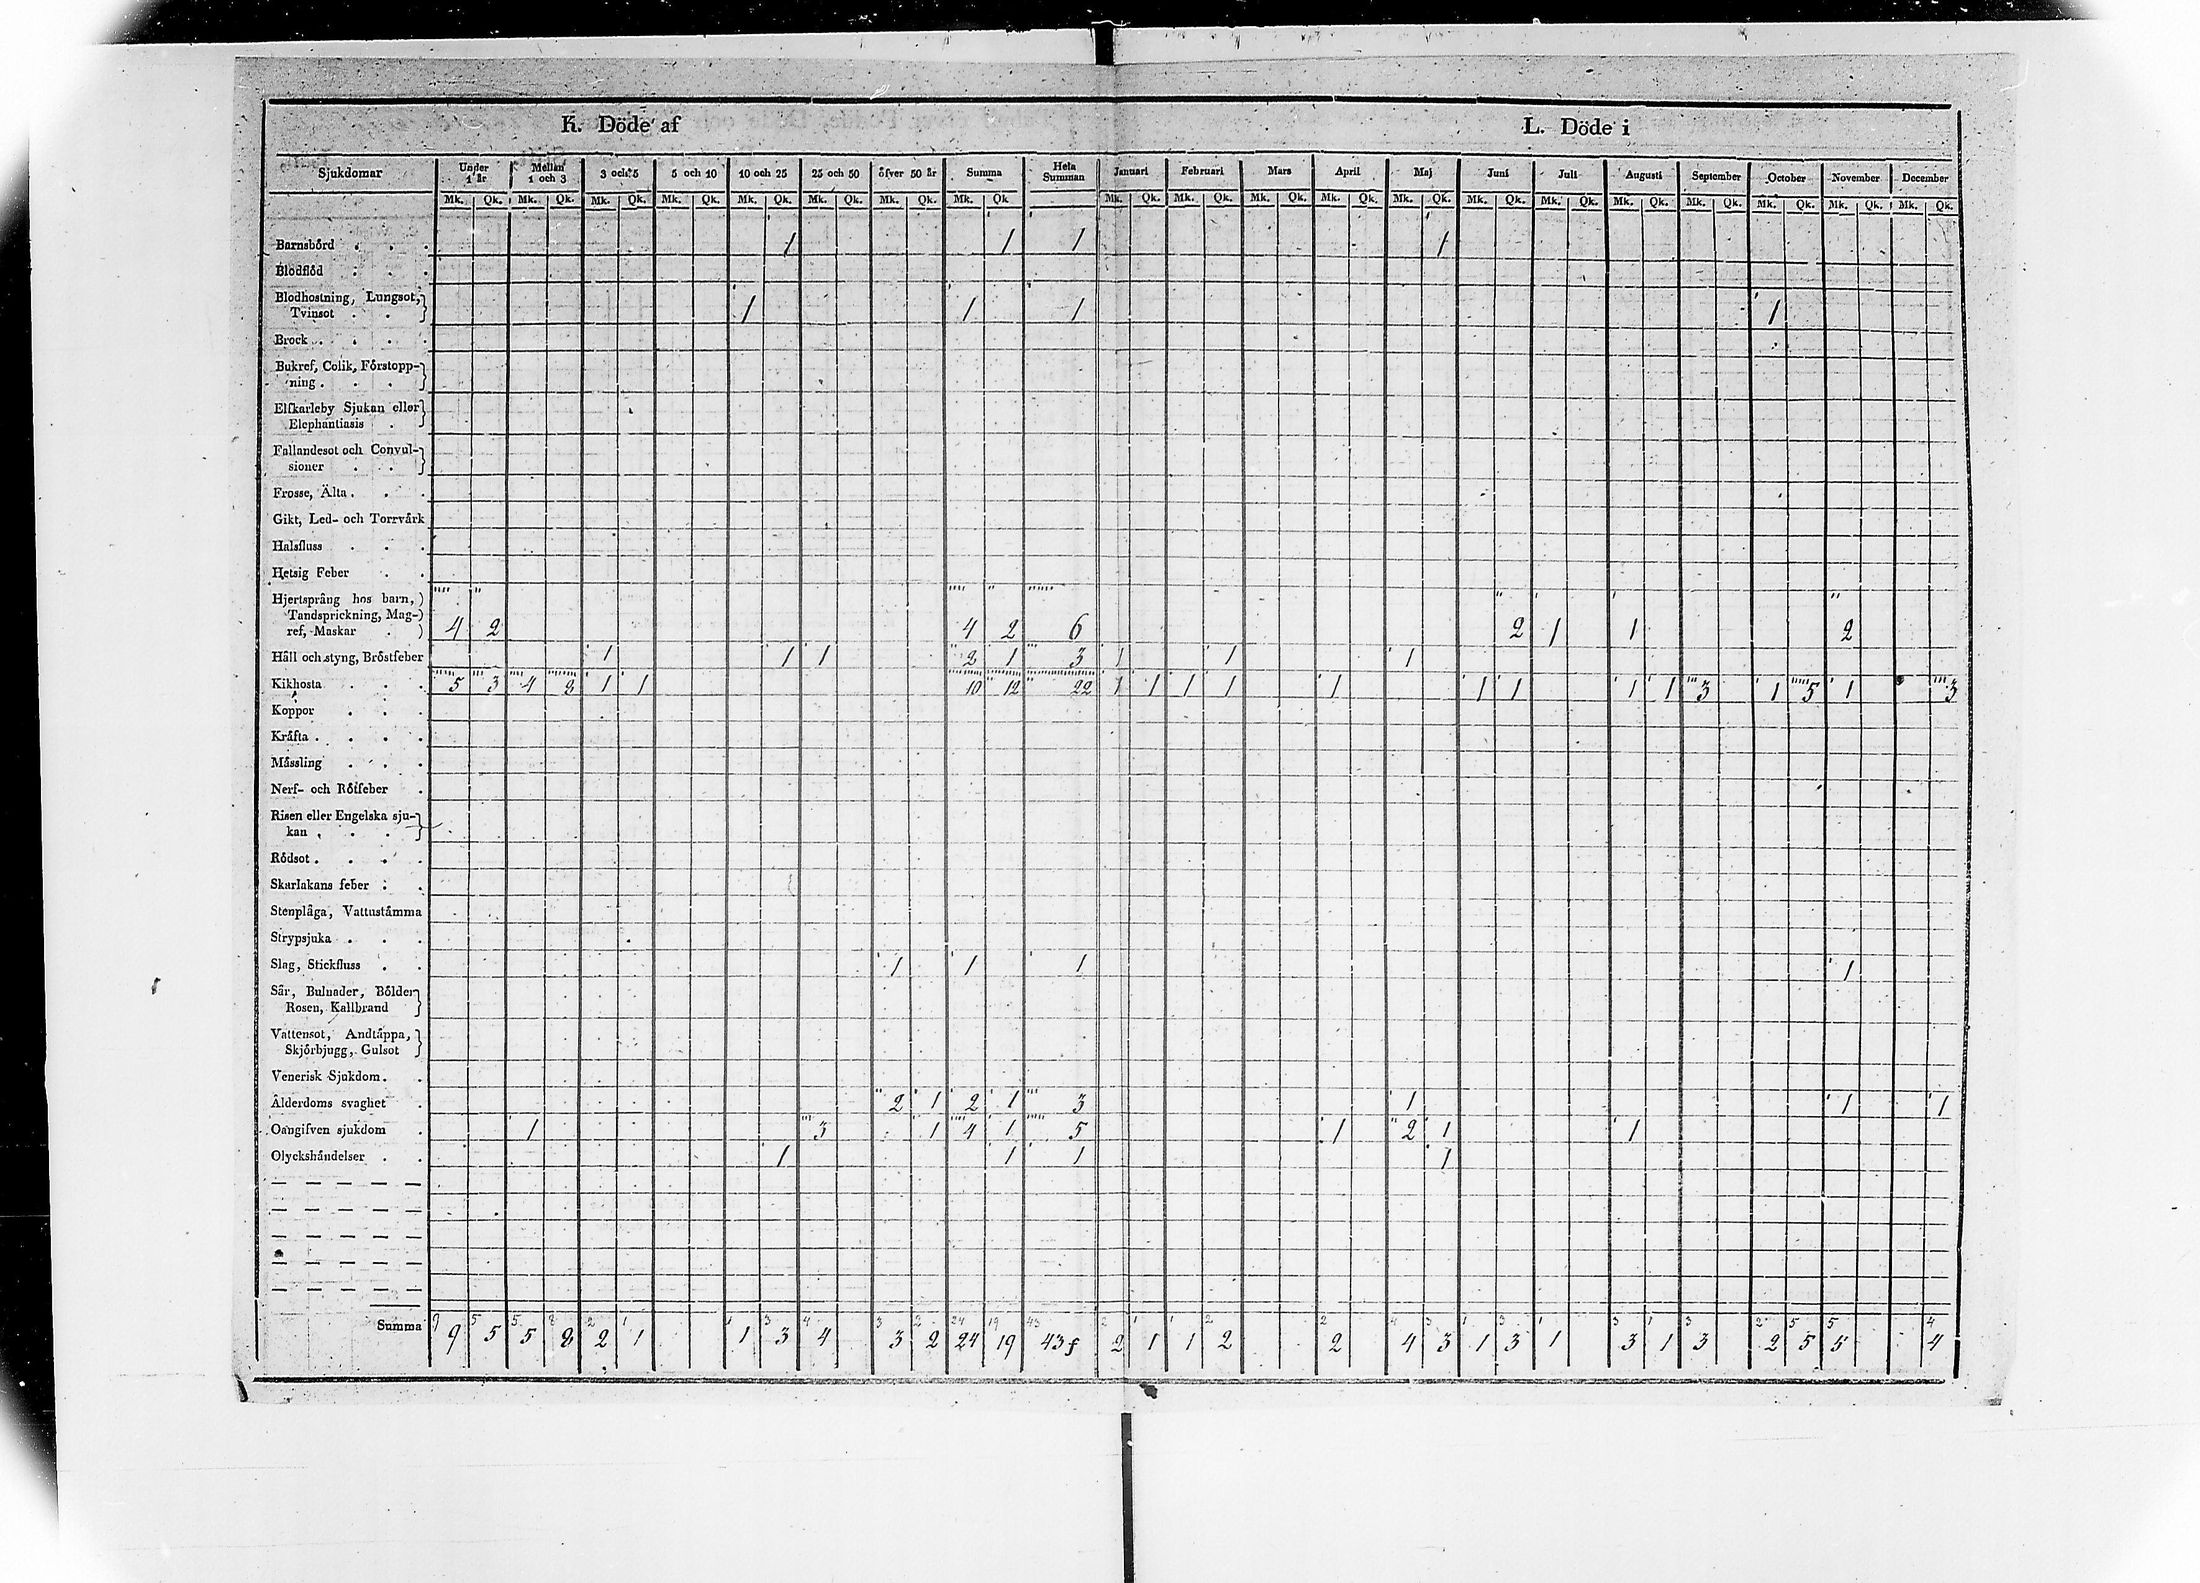 K. Döde af L. Döde i
Sjukdomar Under 1 år Mellan 1 och 3 3 och 5 5 och 10 10 och 25 25 och 50 öfver 50 år Summa Hela Summan Januari Februari Mars April Maj Juni Juli Augusti September October November December
Mk. Qk. Mk. Qk. Mk. Qk. Mk. Qk. Mk. Qk. Mk. Qk. Mk. Qk. Mk. Qk Mk. Qk. Mk. Qk. Mk. Qk. Mk. Qk. Mk. Qk. Mk. Qk. Mk. Qk. Mk. Qk. Mk. Qk. Mk. Qk. Mk. Qk. Mk. Qk.
Barnsbörd . . . 1 1 1 1
Blodflöd . . .
Blodhostning, Lungsot,
Tvinsot . . 1 1 1 1
Brock . . . .
Bukref, Colik, Förstopp-
ning . . .
Elfkarleby Sjukan eller
Elephantiasis .
Fallandesot och Convul-
sioner . . .
Frosse, Älta . . .
Gikt, Led- och Torrvårk
Halsfluss . . .
Hetsig Feber . .
Hjertsprång hos barn,
Tandsprickning, Mag-
ref, Maskar . 4 2 4 2 6 2 1 1 2
Håll och styng, Bröstfeber 1 1 1 2 1 3 1 1 1
Kikhosta . . . 5 3 4 8 1 1 10 12 22 1 1 1 1 1 1 1 1 1 3 1 5 1 3
Koppor . . .
Kråfta . . . .
Måssling . . .
Nerf- och Rötfeber .
Risen eller Engelska sju-
kan . . .
Rödsot . . . .
Skarlakans feber . .
Stenplåga, Vattuståmma
Strypsjuka . . .
Slag, Stickfluss . . 1 1 1 1
Sår, Bulnader, Bölder
Rosen, Kallbrand
Vattensot, Andtåppa,
Skjörbjugg, Gulsot
Venerisk Sjukdom . .
Ålderdoms svaghet . 2 1 2 1 3 1 1 1
Oangifven sjukdom . 1 3 1 4 1 5 1 2 1 1
Olyckshåndelser . . 1 1 1 1
Summa 9 5 5 8 2 1 1 3 4 3 2 24 19 43 2 1 1 2 2 4 3 1 3 1 3 1 3 2 5 5 4